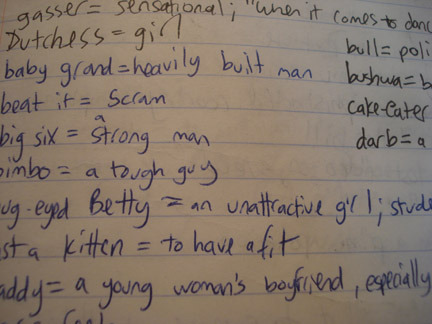 gasser= sensational; "when it comes to danc
Dutchess = girl
baby grand=heavily built man
beat it= Scram
big six = a strong man
bimbo= a tough guy
ug-eyed Betty = an unattractive girl; stude
st a kitten = to have a fit
addy= a young woman's boyfriend, especially
bull= poli
bushwa= b
cake-eater
darb= a